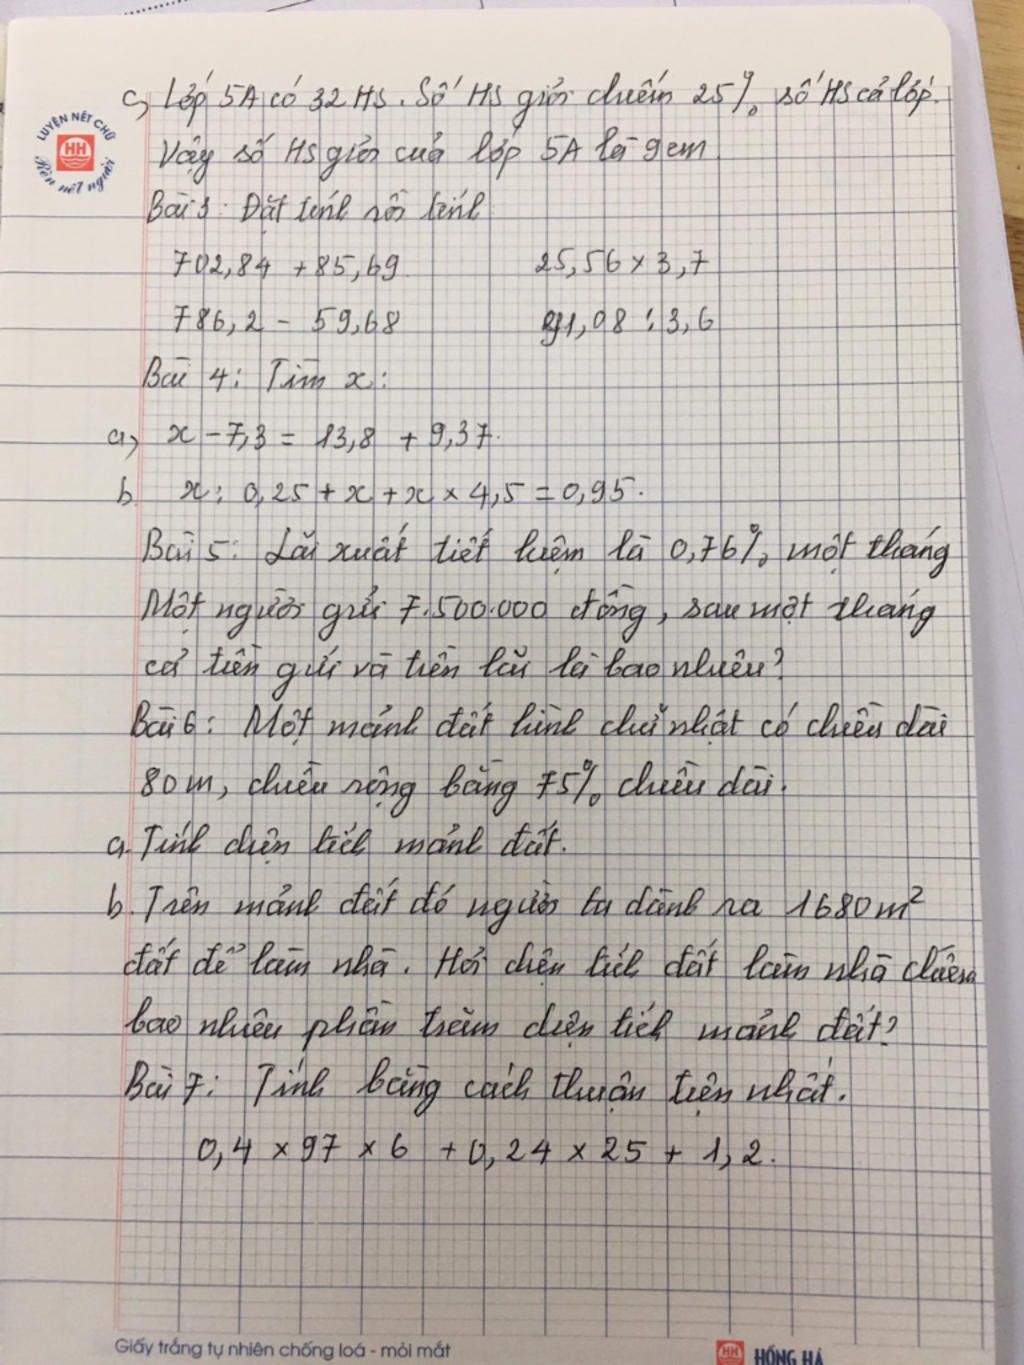 c) Lớp 5A có 32 HS. Số HS giỏi chiếm 25% số HS cả lớp.
LUYỆN NÉT CHỮ
HH
Rèn nết người
Vậy số HS giỏi của lớp 5A là 9 em
Bài 3: Đặt tính rồi tính
702,84 + 85,69 25,56 × 3,7
786,2 - 59,68 91,08 : 3,6
Bài 4: Tìm x:
a) x - 7,3 = 13,8 + 9,37.
b. x : 0,25 + x + x × 4,5 = 0,95.
Bài 5: Lãi xuất tiết kiệm là 0,76% một tháng
Một người gửi 7.500.000 đồng, sau một tháng
cả tiền gửi và tiền lãi là bao nhiêu?
Bài 6: Một mảnh đất hình chữ nhật có chiều dài
80m, chiều rộng bằng 75% chiều dài.
a. Tính diện tích mảnh đất.
b. Trên mảnh đất đó người ta dành ra 1680m²
đất để làm nhà. Hỏi diện tích đất làm nhà chiếm
bao nhiêu phần trăm diện tích mảnh đất?
Bài 7: Tính bằng cách thuận tiện nhất.
0,4 × 97 × 6 + 0,24 × 25 + 1,2.
Giấy trắng tự nhiên chống loá - mỏi mắt
HH HỒNG HÀ